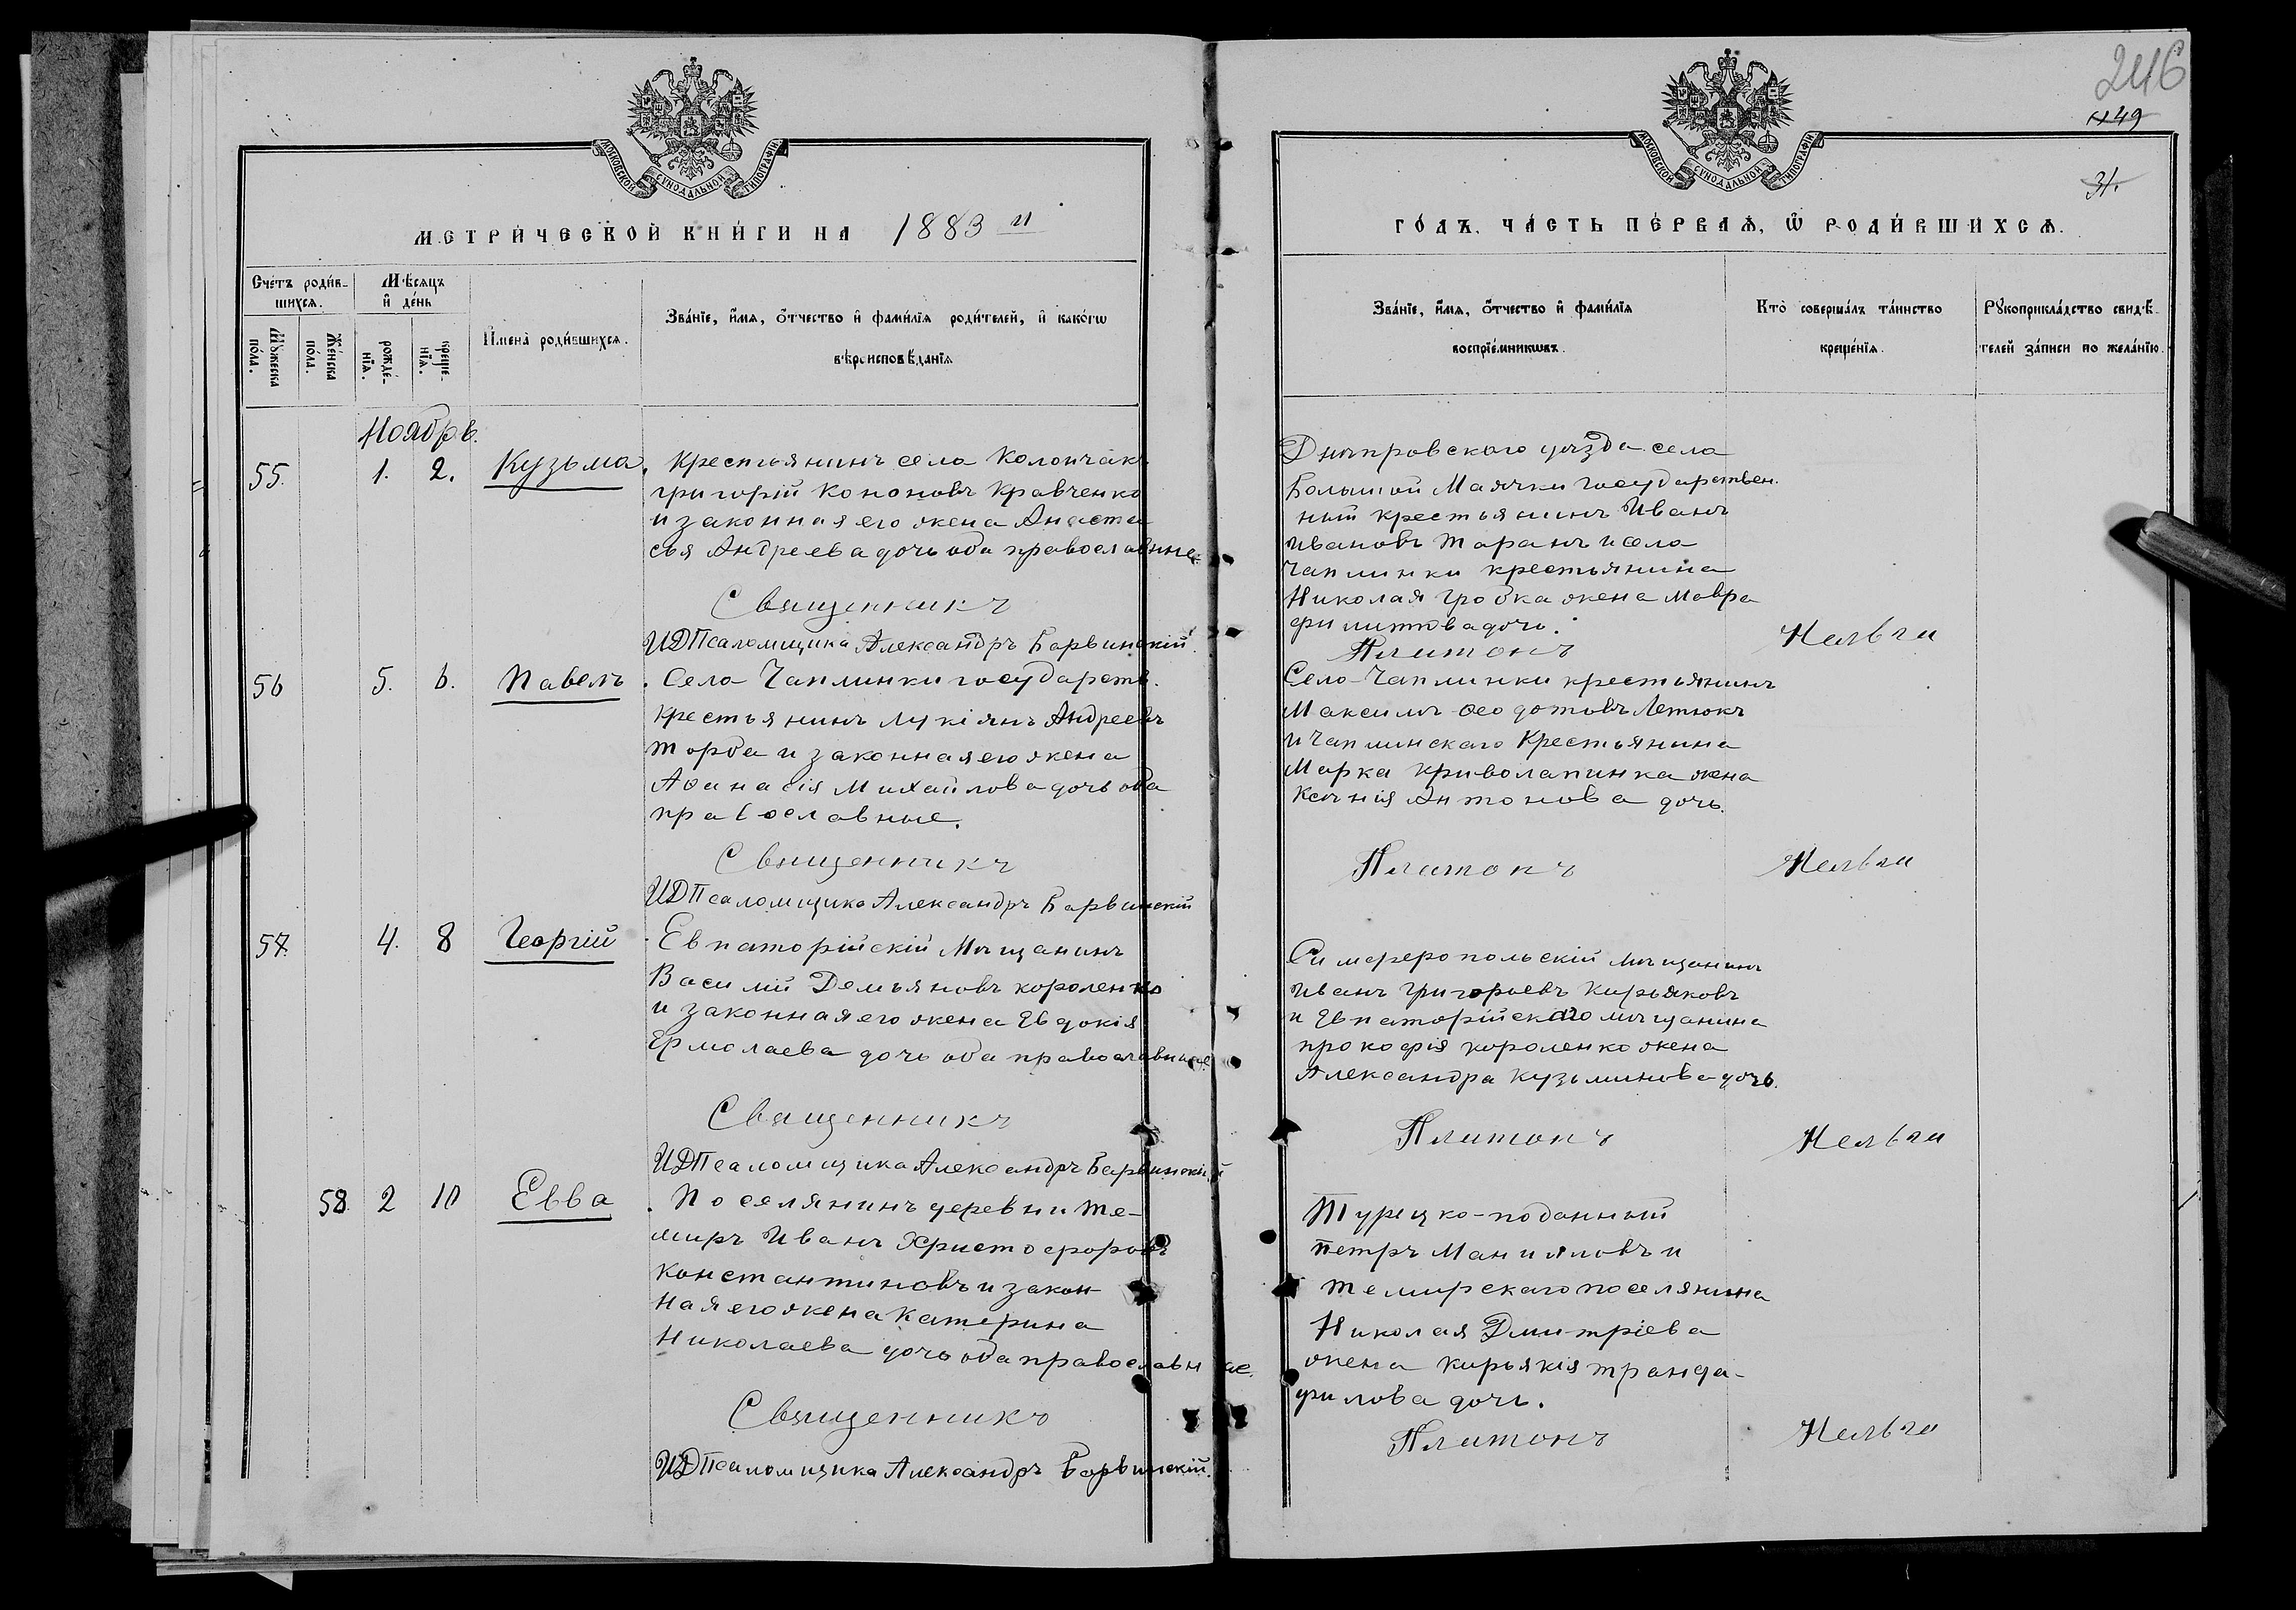 МОСКОВСКОЙ СУНОДАЛЬНОЙ ТИПОГРАФІИ
МЕТРИ́ЧЕСКОЙ КНИ́ГИ НА 1883 й
Сче́тъ роди́в-
шихсѧ.
Мѣ́сѧцъ
и҆ де́нь
Мꙋ́жеска
по́ла.
Же́нска
по́ла.
рожде́-
нїѧ.
креще́-
нїѧ.
И҆мена̀ роди́вшихсѧ.
Зва́нїе, и҆́мѧ, ѻ҆́тчество и҆ фами́лїѧ роди́телей, и҆ како́гѡ
вѣроисповѣ́данїѧ
Ноябрь.
55. 1. 2. Кузьма. Крестьянинъ села Колончакъ
Григорій Кононовъ Кравченко
и законная его жена Анаста
сья Андреева дочь оба православные
Священникъ
ИДПсаломщика Александръ Барвинскій.
56 5. 6. Павелъ. Села Чаплинки государств.
крестьянинъ Лукіянъ Андреевъ
Торба и законная его жена
Аѳанасія Михайлова дочь оба
православные.
Священникъ
ИДПсаломщика Александръ Барвинскій
57. 4. 8 Георгій Евпаторійскій Мѣщанинъ
Василій Демьяновъ короленко
и законная его жена Евдокія
Ермолаева дочь оба православные
Священникъ
ИДПсаломщика Александръ Барвинскій
58 2 10 Евва. Поселянинъ деревни Те-
миръ Иванъ Христофоровъ
Константиновъ и закон
ная его жена Катерина
Николаева дочь оба православные.
Священникъ
ИДПсаломщика Александръ Барвинскій.
246
449
31.
МОСКОВСКОЙ СУНОДАЛЬНОЙ ТИПОГРАФІИ
ГО́ДЪ. ЧА́СТЬ ПЕ́РВАѦ, Ѽ РОДИ́ВШИХСѦ.
Зва́нїе, и҆́мѧ, ѻ҆́тчество и҆ фами́лїѧ
воспрїе́мникѡвъ.
Кто̀ соверша́лъ та́инство
креще́нїѧ.
Рꙋкоприкла́дство свидѣ́-
телей за́писи по жела́нїю.
Днѣпровскаго уѣзда села
Большой Маячки государствен.
ный крестьянинъ Иванъ
Ивановъ Таранъ и села
Чаплинки крестьянина
Николая Гробка жена Мавра
Филипова дочь.
Платонъ
Села Чаплинки крестьянинъ
Максимъ Ѳеодотовъ Летюкъ
и Чаплинскаго Крестьянина
Марка Криволапинка жена
Ксенія Антонова дочь.
Платонъ
Симферопольскій мѣщанинъ
Иванъ Григорьевъ Кирьяковъ
и Евпаторійскаго мѣщанина
прокофія короленко жена
Александра Кузьминова дочь.
Платонъ
Турецко-поданный
Петръ Манияловъ и
Темирскаго поселянина
Николая Дмитріева
жена Кирьякія Транда-
филова дочь.
Платонъ